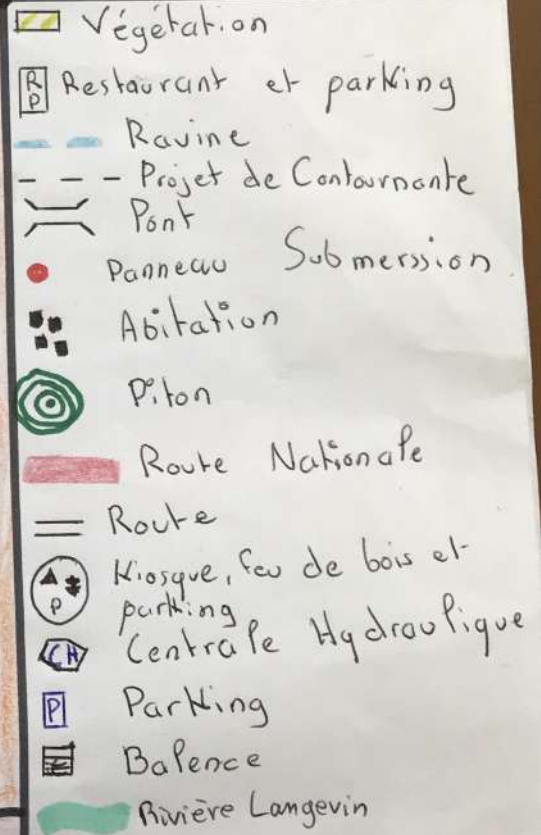 Végétation
R
P
Restaurant et parking
Ravine
Projet de Contournante
Pont
Panneau Submerssion
Abitation
Piton
Route Nationale
Route
P
Kiosque, feu de bois et
parking
CH
Centrale Hydraulique
P
Parking
Balence
Rivière Langevin